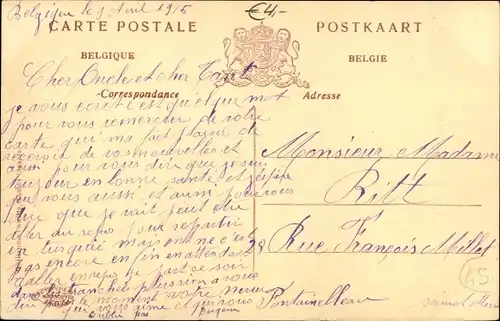 Belgique le 9 Avril 1915
€4,-
CARTE POSTALE
POSTKAART
BELGIQUE
BELGIE
Correspondance
Adresse
Cher Oncle et cher Tante
je vous ecrit ces quelque mot
pour vous remercier de votre
carte qui ma fait plaisir de
recevoir de vos nouvelles et
aussi pour vous dire que je suis
toujour en bonne santé et j'espère
que vous aussi et aussi pour vous
dire que je vait peut etre
aller au repos pour repartir
en turquie mais on ne c'est
pas encore en fin en attendant
d'aller en repos
dans tranchés
le moment votre neveu
qui vous aime et
oublié pas Eugene
Monsieur Madame
Ritt
28 Rue François Millet
Fontainebleau
Seine et Marne
45